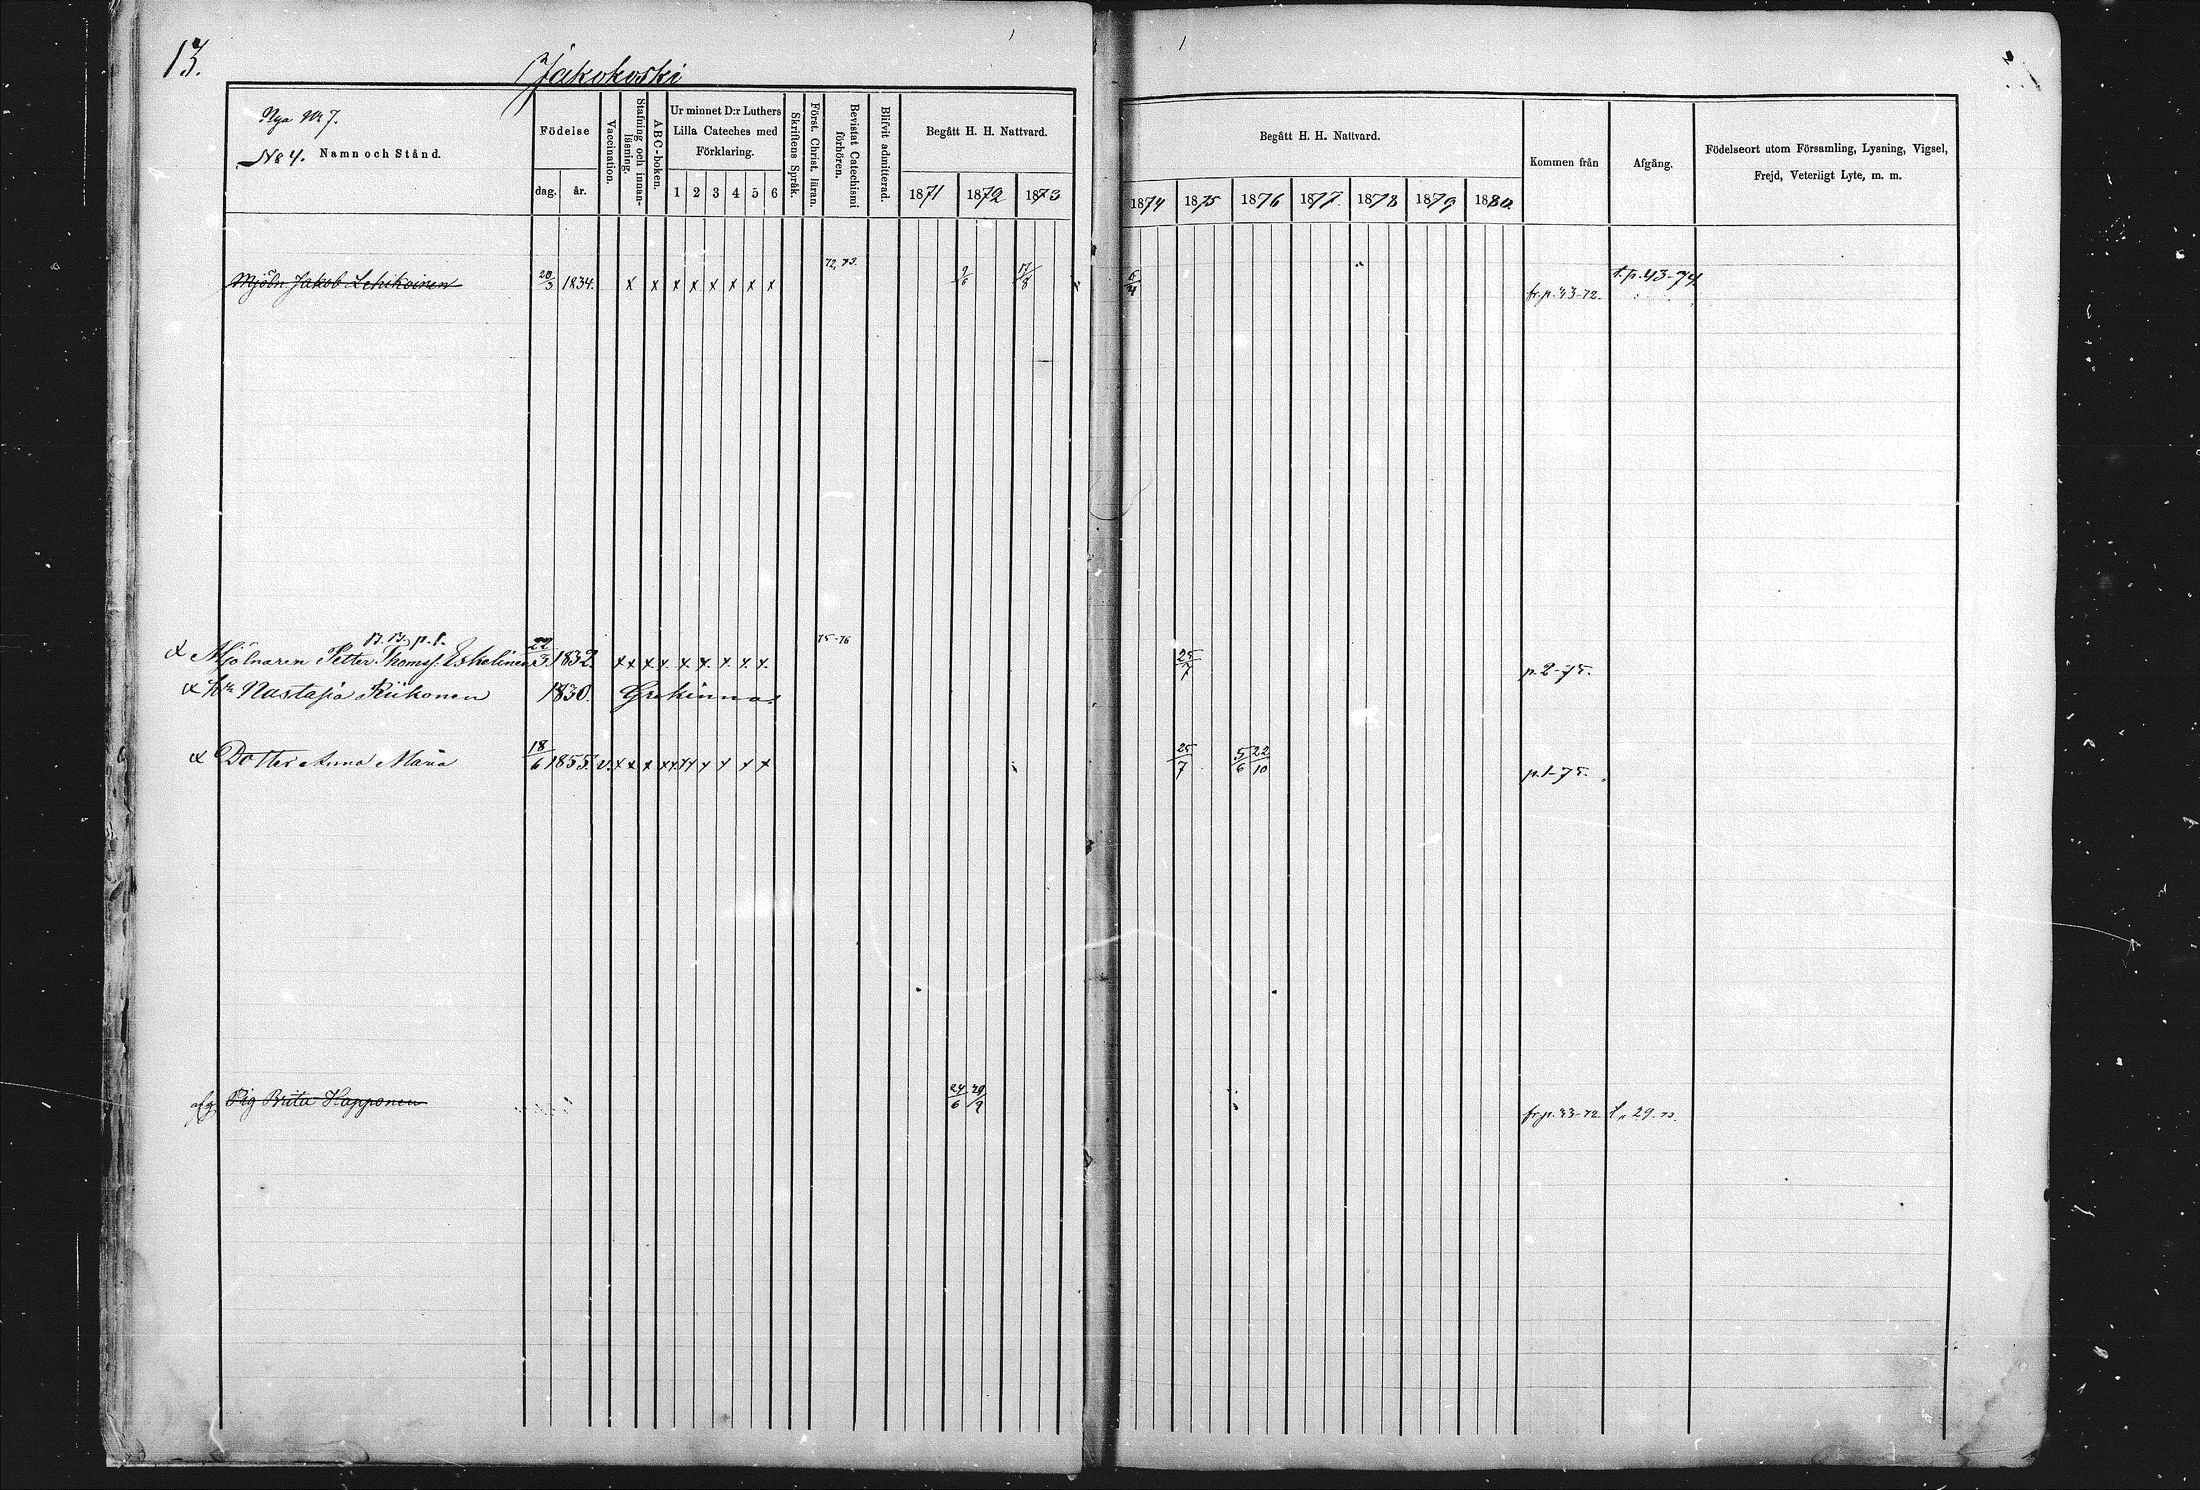 13.
Jakokoski
Nya No 7.
No 4. Namn och Stånd.
Födelse
dag. år.
Vaccination.
Stafning och innan-läsning.
ABC-boken.
Ur minnet D:r Luthers Lilla Cateches med Förklaring.
1 2 3 4 5 6
Skriftens Språk.
Först. Christ. läran.
Bevistat Catechismi förhören.
Blifvit admitterad.
Begått H. H. Nattvard.
1871 1872 1873
Begått H. H. Nattvard.
1874 1875 1876 1877 1878 1879 1880.
Kommen från
Afgång.
Födelseort utom Församling, Lysning, Vigsel,
Frejd, Veterligt Lyte, m. m.
Mjöln Jakob Lehikoinen 20/3 1834. x x x x x x x x 72, 73. 9/6 17/8 6/4 fr. p. 43-72. t. p. 43-74.
p. 1.
Mjölnaren Petter Thomss: Eskelinen 22/3 1832. x x x x x x x x x 75-76 25/7 p. 2-75.
Nastasia Riikonen 1830. Grekinna.
Dotter Anna Maria 18/6 1855. v. x x x x x x x x x 25/7 5/6 22/10 p. 1-75.
afg. Pig Brita Kapponen 24/6 20/9 fr. p. 43-72